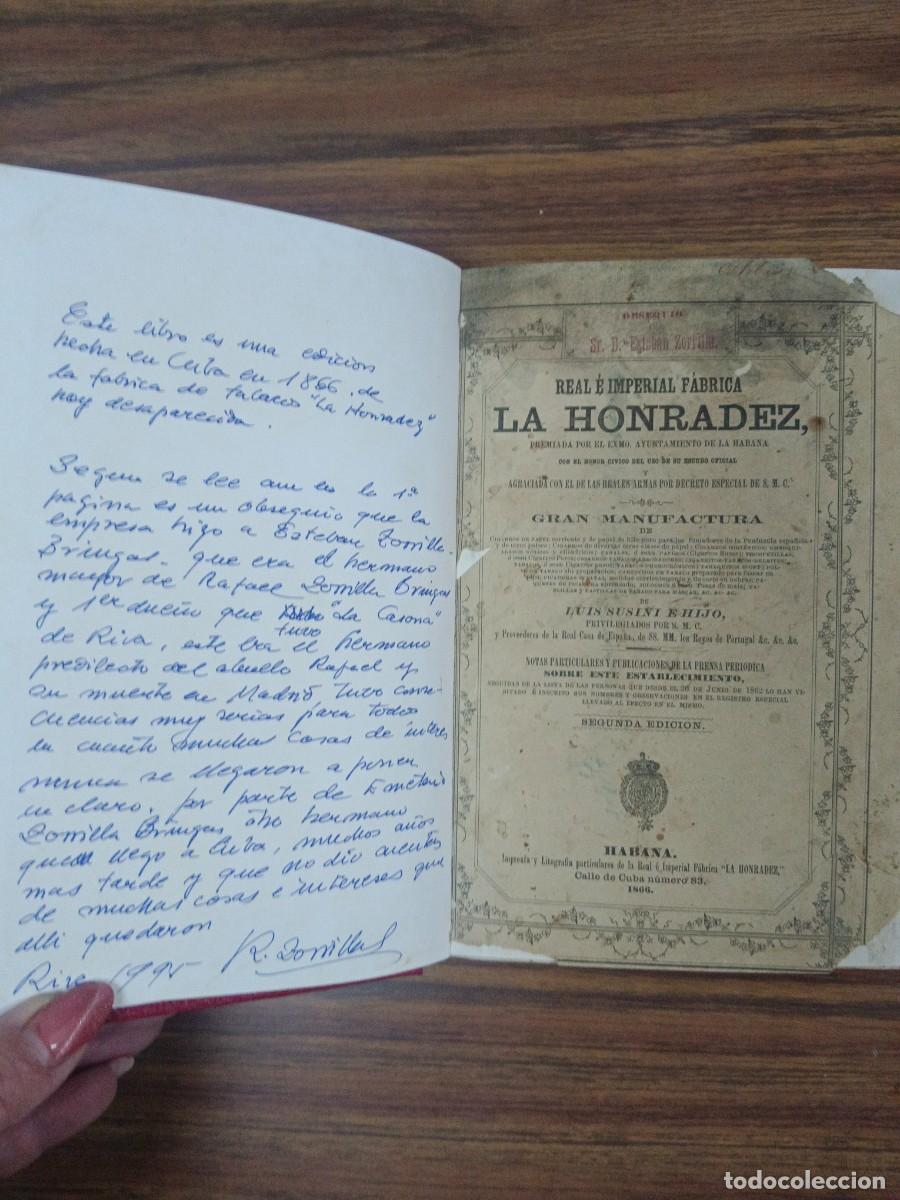 Este libro es una edicion
hecha en Cuba en 1866 de
la fabrica de tabacos "La Honradez"
hoy desaparecida.
Segun se lee aun en la 1ª
pagina es un obsequio que la
empresa hizo a Esteban Zorrilla
Bringas. que era el hermano
mayor de Rafael Zorrilla Bringas
y 1er dueño que "La Casona"
tuvo
de Riva, este era el hermano
predilecto del abuelo Rafael y
su muerte en Madrid tuvo conse
cuencias muy serias para todos
en cuanto muchas cosas de interes
nunca se llegaron a poner
en claro. por parte de Emeterio
Zorrilla Bringas otro hermano
que llego a Cuba, muchos años
mas tarde y que no dio cuentas
de muchas cosas e intereses que
alli quedaron
Riva 1995 R. Zorrilla
OBSEQUIO
Sr. D. Esteban Zorrilla.
REAL É IMPERIAL FÁBRICA
LA HONRADEZ,
PREMIADA POR EL EXMO. AYUNTAMIENTO DE LA HABANA
CON EL HONOR CIVICO DEL USO DE SU ESCUDO OFICIAL
Y
AGRACIADA CON EL DE LAS REALES ARMAS POR DECRETO ESPECIAL DE S. M. C.
GRAN MANUFACTURA
DE
DE
LUIS SUSINI É HIJO,
PRIVILEGIADOS POR S. M. C.
y Proveedores de la Real Casa de España, de SS. MM. los Reyes de Portugal &c. &c. &c.
NOTAS PARTICULARES Y PUBLICACIONES DE LA PRENSA PERIODICA
SOBRE ESTE ESTABLECIMIENTO,
SEGUIDAS DE LA LISTA DE LAS PERSONAS QUE DESDE EL 26 DE JUNIO DE 1862 LO HAN VI-
SITADO É INSCRITO SUS NOMBRES Y OBSERVACIONES EN EL REGISTRO ESPECIAL
LLEVADO AL EFECTO EN EL MISMO.
SEGUNDA EDICION.
HABANA.
Imprenta y Litografia particulares de la Real é Imperial Fábrica "LA HONRADEZ,"
Calle de Cuba número 83.
1866.
todocoleccion